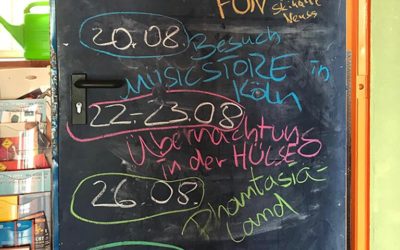 FUN
Skihalle
Neuss
20.08.
Besuch
MUSICSTORE in
Köln
22.-23.08
Übernachtung
in der HÜLSE
26.08.
Phantasia-
Land